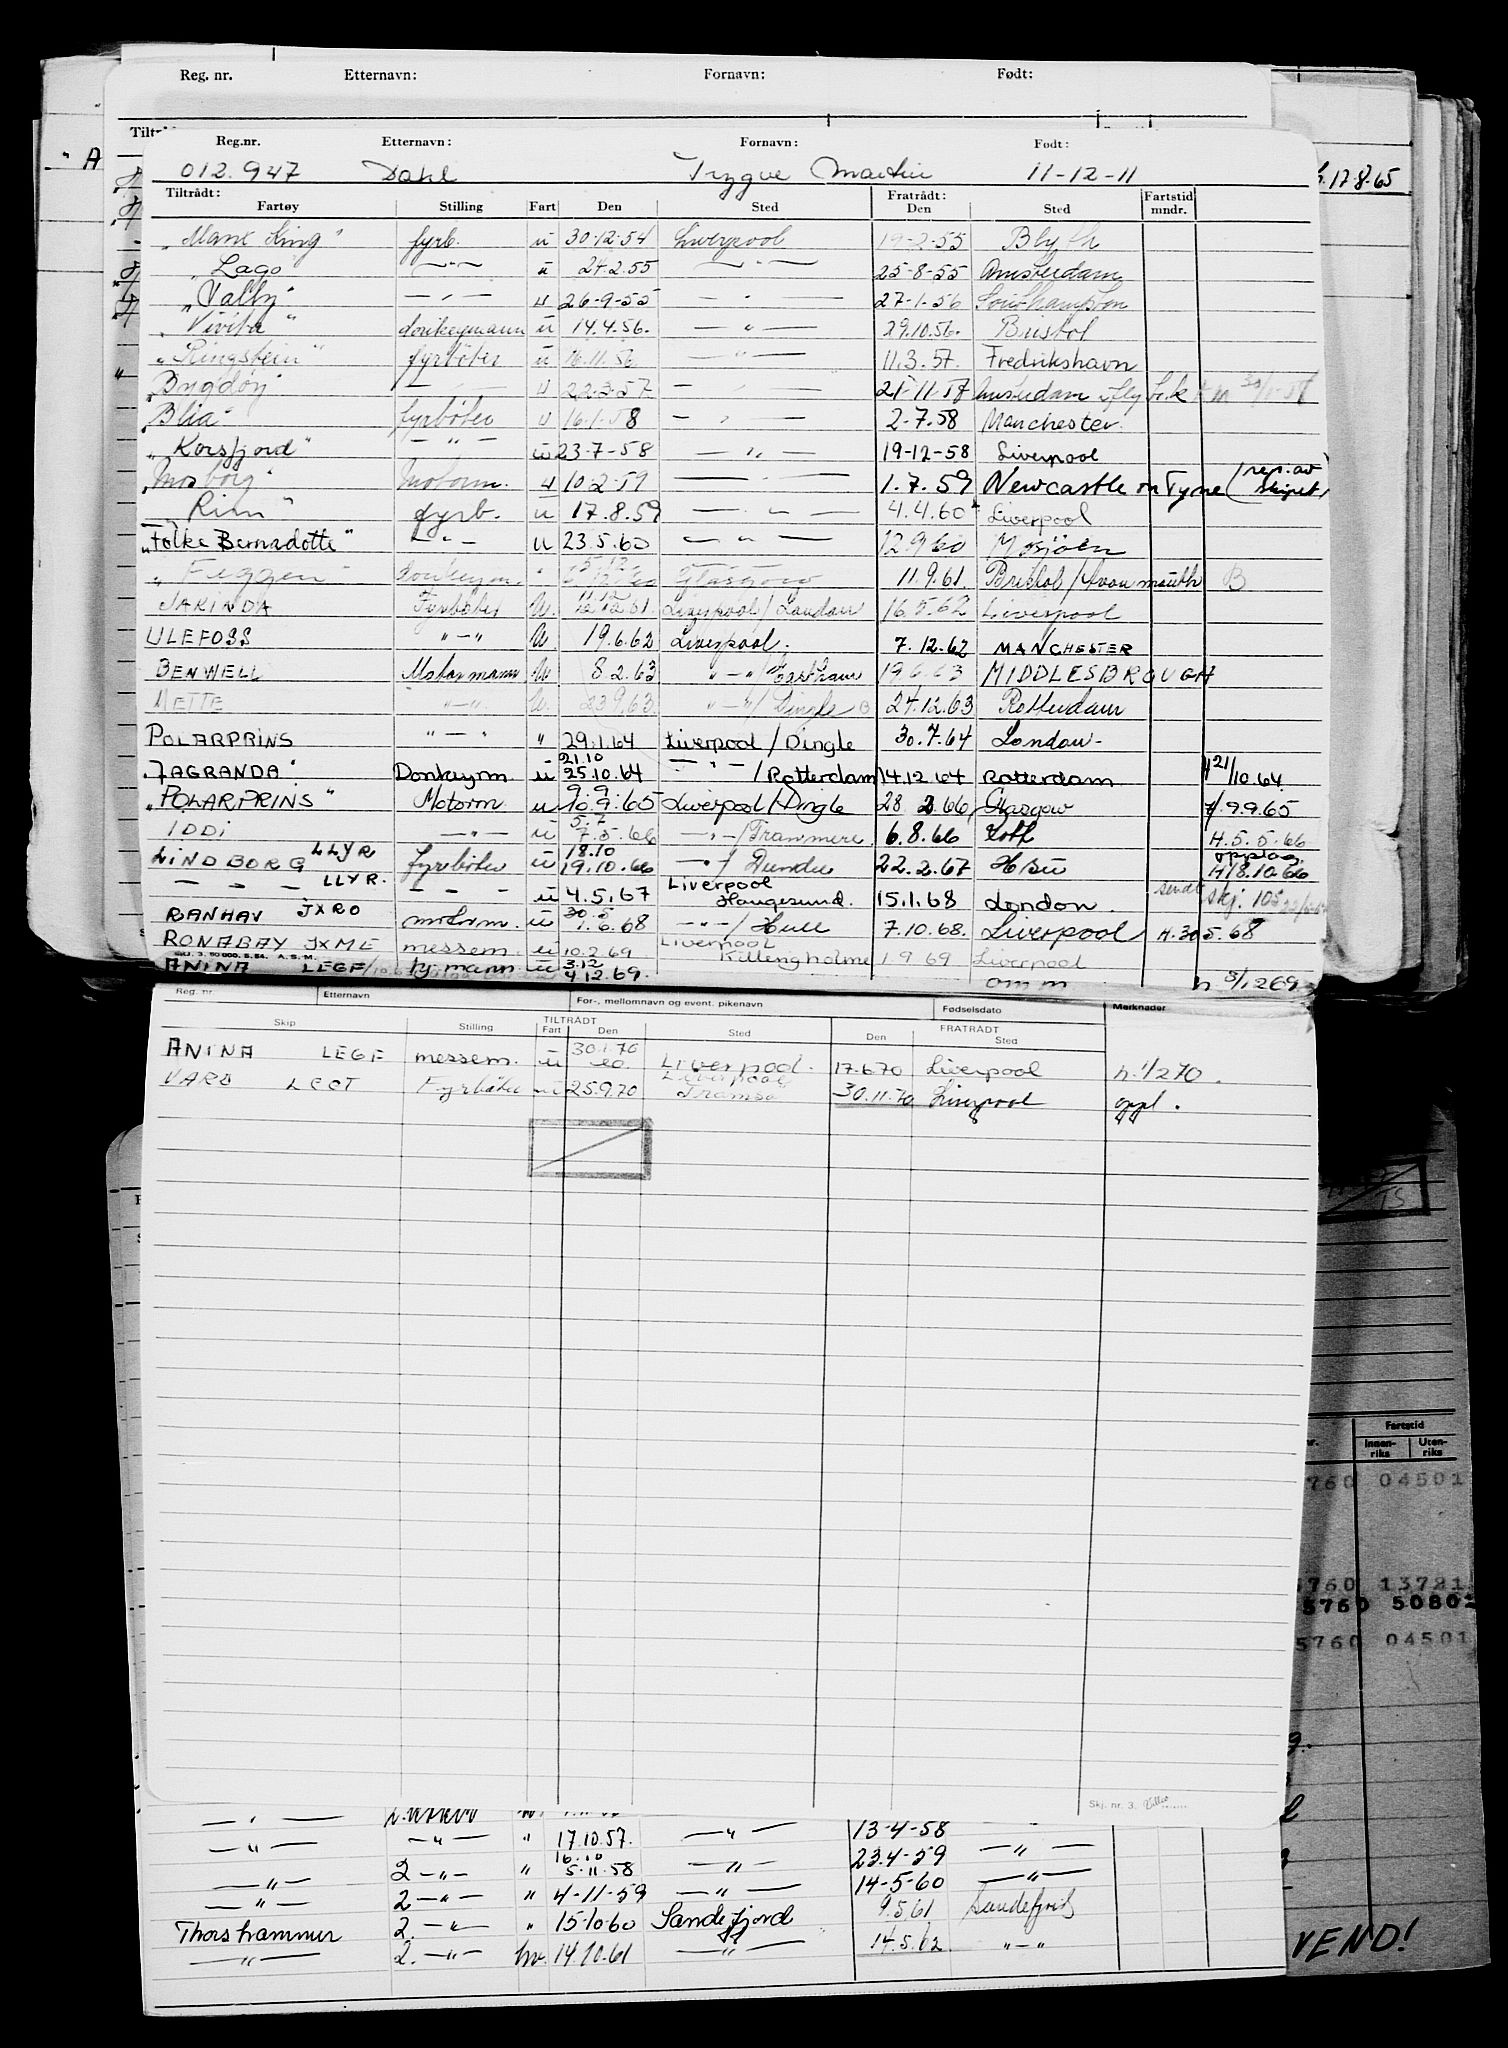 Reg. nr. Etternavn: Fornavn: Født:
Reg.nr. Etternavn: Fornavn: Født:
012.947 Dahl Trygve Martin 11-12-11
h. 17-8-65
Tiltrådt: Fratrådt: Fartstid
Fartøy Stilling Fart Den Sted Den Sted mndr.
"Manx King" fyrb. u 30-12-54 Liverpool 19-2-55 Blyth
"Lago" —"— u 24.2.55 —"— 25-8-55 Amsterdam
"Vally" —"— u 26-9-55 —"— 27-1-56 Southampton
"Vivita" donkeymann u 14.4.56. —"— 29.10.56. Bristol
"Ringstein" fyrbøter u 16.11.56 —"— 11.3.57. Fredrikshavn
"Bygdøy" —"— u 22.3.57 —"— 21-11-57 Amsterdam
"Blia" fyrbøter u 16.1.58 —"— 2-7.58 Manchester
"Korsfjord" —"— u 23-7-58 —"— 19-12-58 Liverpool
"Mosborg" motorm. u 10.2.59 —"— 1.7.59 Newcastle on Tyne (rep. av skipet)
"Rim" fyrb. u 17.8.59 —"— 4.4.60 Liverpool
"Folke Bernadotte" —"— u 23.5.60 —"— 12.9.60 Mosjøen
"Feggen" donkeym. " Glasgow 11.9.61. Bristol/Avonmouth B
JAKINDA Fyrbøter U. 12.12.61. Liverpool/London 16.5.62 Liverpool
ULEFOSS "—" U. 19.6.62 Liverpool. 7.12.62 MANCHESTER
BENWELL Motormann U 8.2.63 "—" Eastham 19.6.63 MIDDLESBROUGH
METTE "—" U. 23.9.63. "—"/Dingle B 24.12.63 Rotterdam
POLARPRINS "—" " 29.1.64 Liverpool/Dingle 30.7.64 London-
"JAGRANDA" Donkeym. u 21.10 25.10.64 —"—/Rotterdam 14.12.64 Rotterdam H 21/10.64
"POLARPRINS" Motorm. u 9.9 10.9.65 Liverpool/Dingle 28.2.66 Glasgow H. 9.9.65
IDDI —"— u 5.7 7.5.66 —"—/Tranmere 6.8.66 H. 5.5.66
LINDBORG LLYR fyrbøter u 18.10 19.10.66 —"—/Dundee 22.2.67 opplag H 18.10.66
— — — LLYR. — — — u 4.5.67 Liverpool Haugesund. 15.1.68 London. sendt skj. 105
RANHAV JXRO motorm. u 30.5 1.6.68 —"—/Hull 7.10.68. Liverpool H. 30.5.68
RONABAY JXME messem. u 10.2.69 Liverpool Killingholme 1.9.69 Liverpool
SKJ. 3. 50 000. 5.54. A.S.M.
ANINA LEGF u 3.12 4.12.69. omm h 3/12 69
Reg. nr. Etternavn For-, mellomnavn og event. pikenavn Fødselsdato Merknader
TILTRÅDT FRATRÅDT
Skip Stilling Fart Den Sted Den Sted
ANINA LEGF messem. u 30.1.70 Liverpool. 17.6.70 Liverpool h. 1/2 70.
VARD LECT Fyrbøter u 25.9.70 Liverpool Tromsø 30.11.70 Liverpool oppl.
TS
Fartstid
Innenriks Utenriks
5760 04501
5760 13721
5760 50801
5760 04501
Skj. nr. 3.
—"— —"— " 17.10.57. —"— 13-4-58
—"— 2 —"— " 16.10 5.11.58 —"— 23.4-59 —"—
—"— 2 —"— " 4-11-59 —"— 14-5-60 —"—
Thorshammer 2. —"— " 15-10 60 Sandefjord 9.5.61 Sandefjord
—"— 2. —"— hv. 14.10.61 —"— 14.5.62 "—"
VEND!